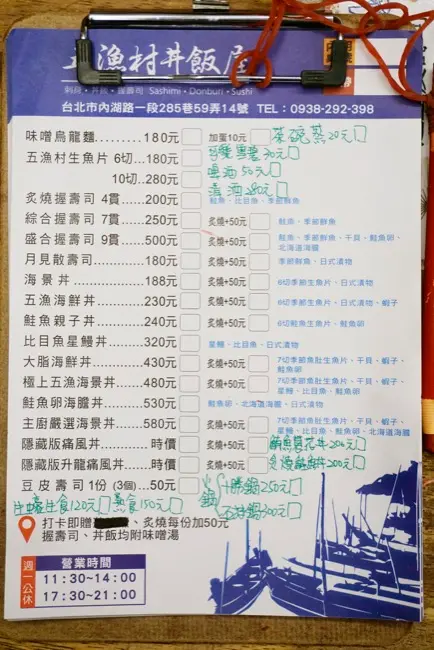 五漁村丼飯屋
刺身・丼飯・握壽司 Sashimi・Donburi・Sushi
台北市內湖路一段285巷59弄14號 TEL：0938-292-398
味噌烏龍麵.........180元 加蛋10元 茶碗蒸20元
五漁村生魚片 6切...180元
10切...280元 啤酒50元
清酒280元
炙燒握壽司 4貫......200元 鮭魚、比目魚、季節鮮魚
綜合握壽司 7貫......250元 炙燒+50元 鮭魚、季節鮮魚
盛合握壽司 9貫......500元 炙燒+50元 鮭魚、季節鮮魚、干貝、鮭魚卵、
北海道海膽
月見散壽司............180元 炙燒+50元 季節鮮魚、日式漬物
海景丼..................188元 炙燒+50元 6切季節生魚片、日式漬物
五漁海鮮丼............230元 炙燒+50元 6切季節生魚片、日式漬物、蝦子
鮭魚親子丼............240元 炙燒+50元 6切鮭魚生魚片、鮭魚卵
比目魚星鰻丼.........320元 星鰻、比目魚、日式漬物
大脂海鮮丼............430元 炙燒+50元 7切季節魚肚生魚片、干貝、蝦子、
鮭魚卵
極上五漁海景丼......480元 炙燒+50元 7切季節魚肚生魚片、干貝、蝦子、
星鰻、比目魚、鮭魚卵
鮭魚卵海膽丼.........530元 鮭魚卵、北海道海膽、日式漬物
主廚嚴選海景丼......580元 炙燒+50元 7切季節魚肚生魚片、干貝、蝦子、
星鰻、比目魚、鮭魚卵、北海道海膽
隱藏版痛風丼.........時價 炙燒+50元
隱藏版升龍痛風丼...時價 炙燒+50元
豆皮壽司 1份 (3個)...50元 火鍋
生蠔生食120元 熟食150元
打卡即贈、炙燒每份加50元
握壽司、丼飯均附味噌湯
週一公休
營業時間
11:30~14:00
17:30~21:00